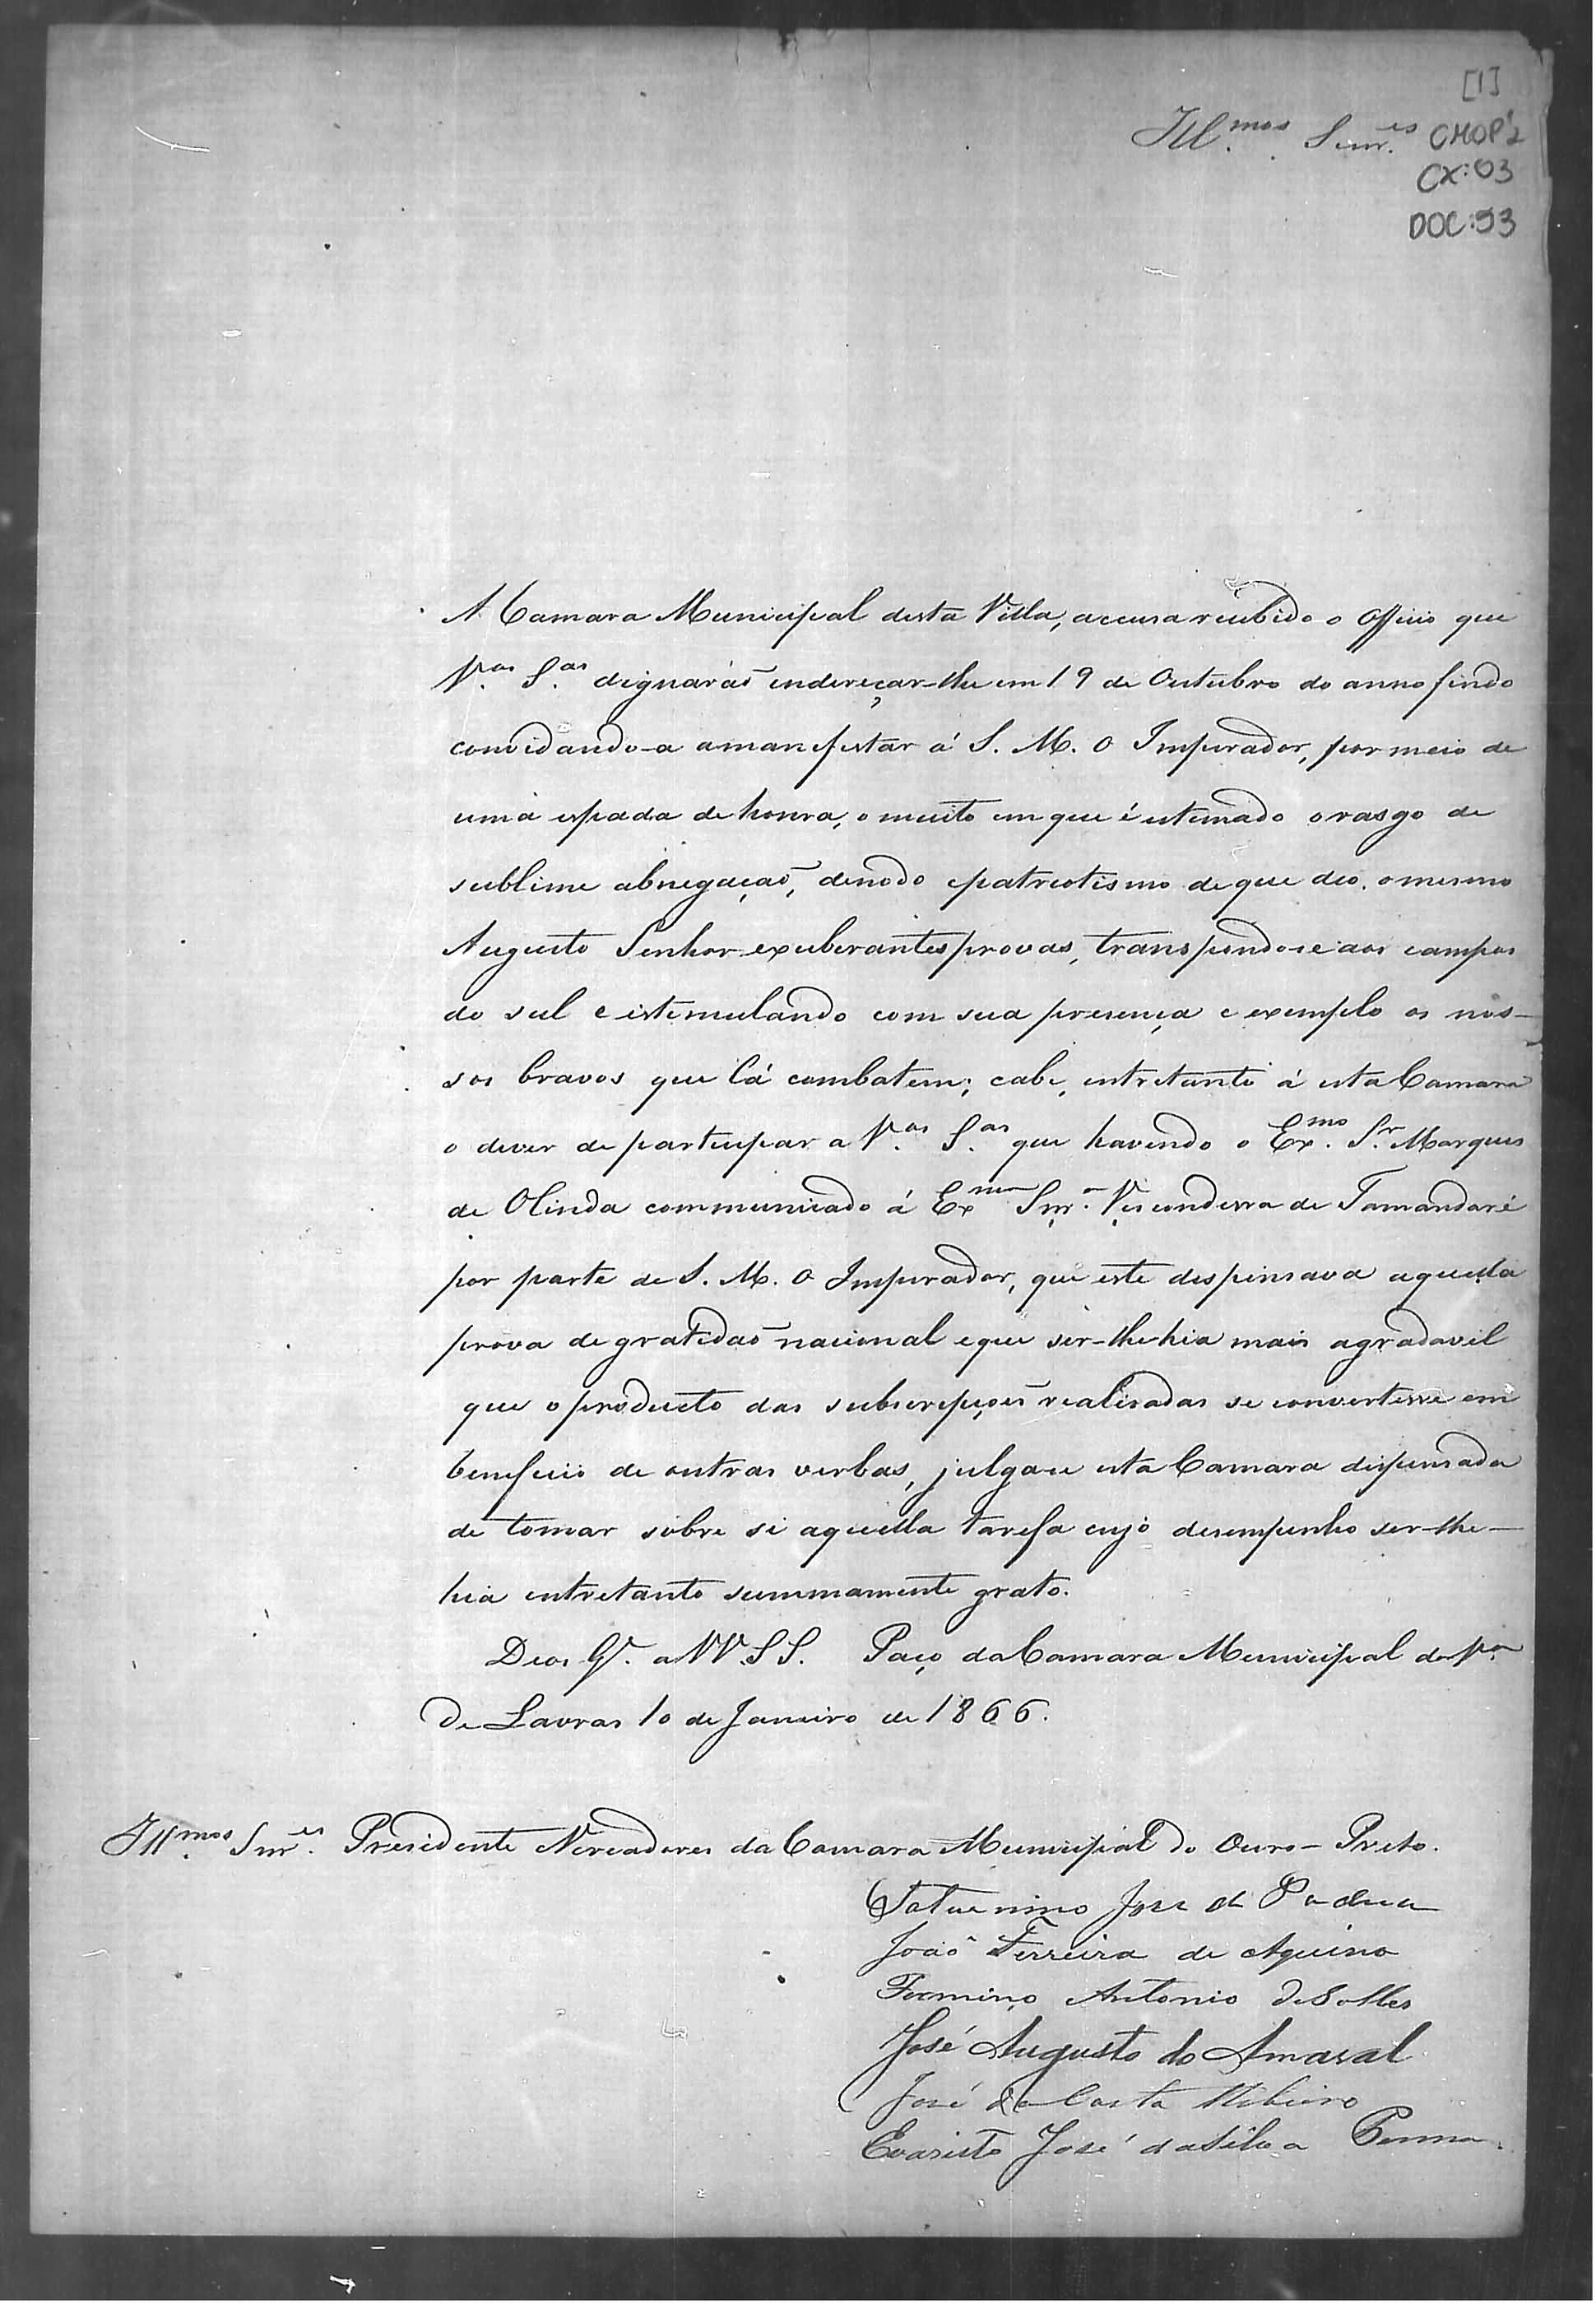 [1]
Ill.mos Snr.es CMOP'2
CX:03
DOC:93
A Camara Municipal desta Villa, accusa recebido o Officio que
V.as S.as dignarão endereçar-lhe em 19 de Outubro do anno findo
convidando-a a manifestar á S. M. O Imperador, por meio de
uma espada de honra, o muito em que é estimado o rasgo de
sublime abnegação, denodo e patriotismo de que deo o mesmo
Augusto Senhor exuberantes provas, transpondo-se aos campos
do sul e estimulando com sua presença e exemplo os nos-
sos bravos que lá combatem; cabe, entretanto á esta Camara
o dever de participar a V.as S.as que havendo o Ex.mo Sr. Marques
de Olinda communicado á Ex.ma Snr.a Viscondessa de Tamandaré
por parte de S. M. O Imperador, que este dispensava aquella
prova de gratidão nacional e que ser-lhe hia mais agradavel
que o producto das subscripções realisadas se convertesse em
beneficio de outras verbas, julga-se esta Camara dispensada
de tomar sobre si aquella tarefa cujo desempenho ser-lhe-
hia entretanto summamente grato.
Deos G.e a VV. SS. Paço da Camara Municipal da V.a
de Lavras 10 de Janeiro de 1866.
Ill.mos Snr.es Presidente Vereadores da Camara Municipal do Ouro-Preto.
Saturnino Jose de Padua
João Ferreira de Aquino
Firmino Antonio de Salles
José Augusto do Amaral
José da Costa Ribeiro
Evaristo José da Silva Penna